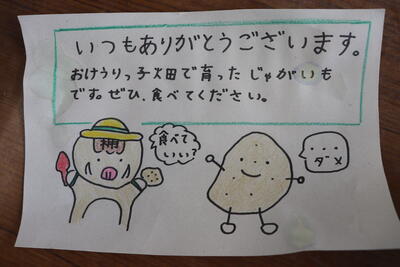 いつもありがとうございます。
おけうりっ子畑で育ったじゃがいも
です。ぜひ、食べてください。
食べて
いい?
・・・
ダメ